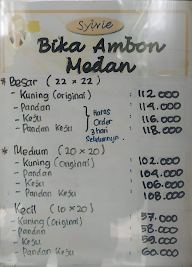 Sylvie
Bika Ambon
Medan
* Besar (22 x 22)
- Kuning (original) : 112.000
- Pandan : 114.000
- Keju : 116.000
- Pandan Keju : 118.000
} Harus
Order
3 hari
Sebelumnya.
* Medium (20 x 20)
- Kuning (original) : 102.000
- Pandan : 104.000
- Keju : 106.000
- Pandan Keju : 108.000
Kecil (10 x 20)
- Kuning (original) : 57.000
- Pandan : 58.000
- Keju : 59.000
- Pandan Keju : 60.000